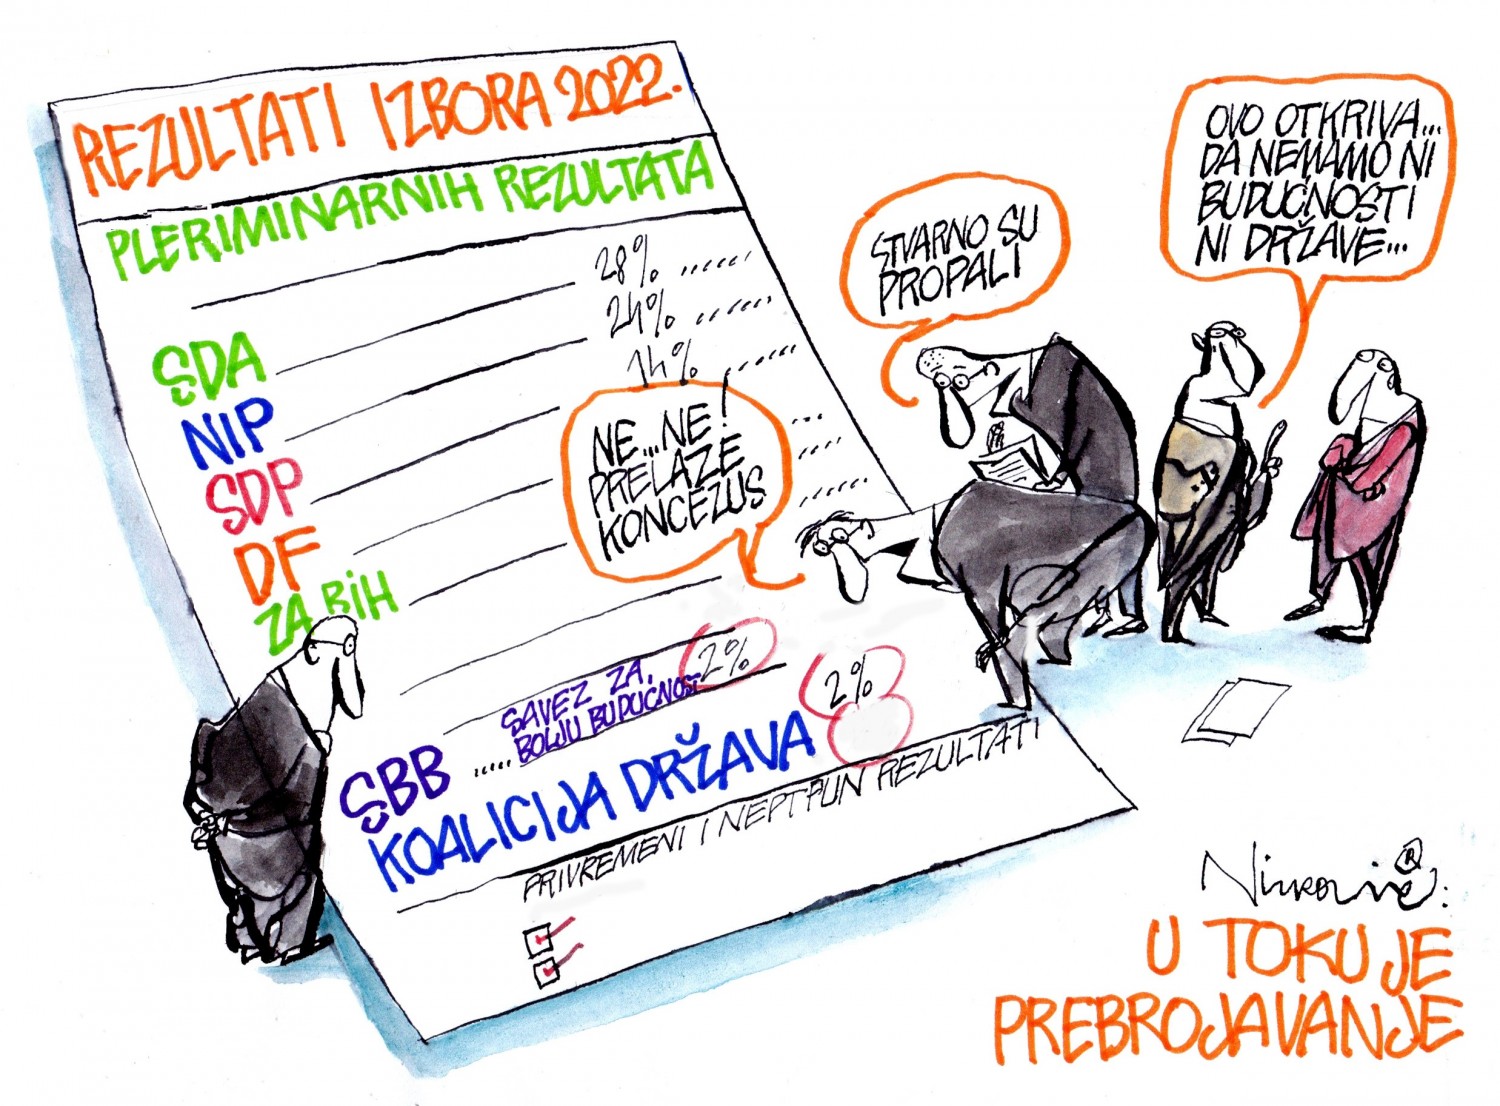 REZULTATI IZBORA 2022.
PLERIMINARNIH REZULTATA
28%
SDA
24%
NIP
14%
SDP
DF
ZA BiH
SBB ..... SAVEZ ZA
BOLJU BUDUĆNOST
2%
KOALICIJA DRŽAVA
2%
PRIVREMENI I NEPTPUN REZULTATI
NE...NE!
PRELAZE
KONCEZUS
STVARNO SU
PROPALI
OVO OTKRIVA...
DA NEMAMO NI
BUDUĆNOSTI
NI DRŽAVE...
®
U TOKU JE
PREBROJAVANJE